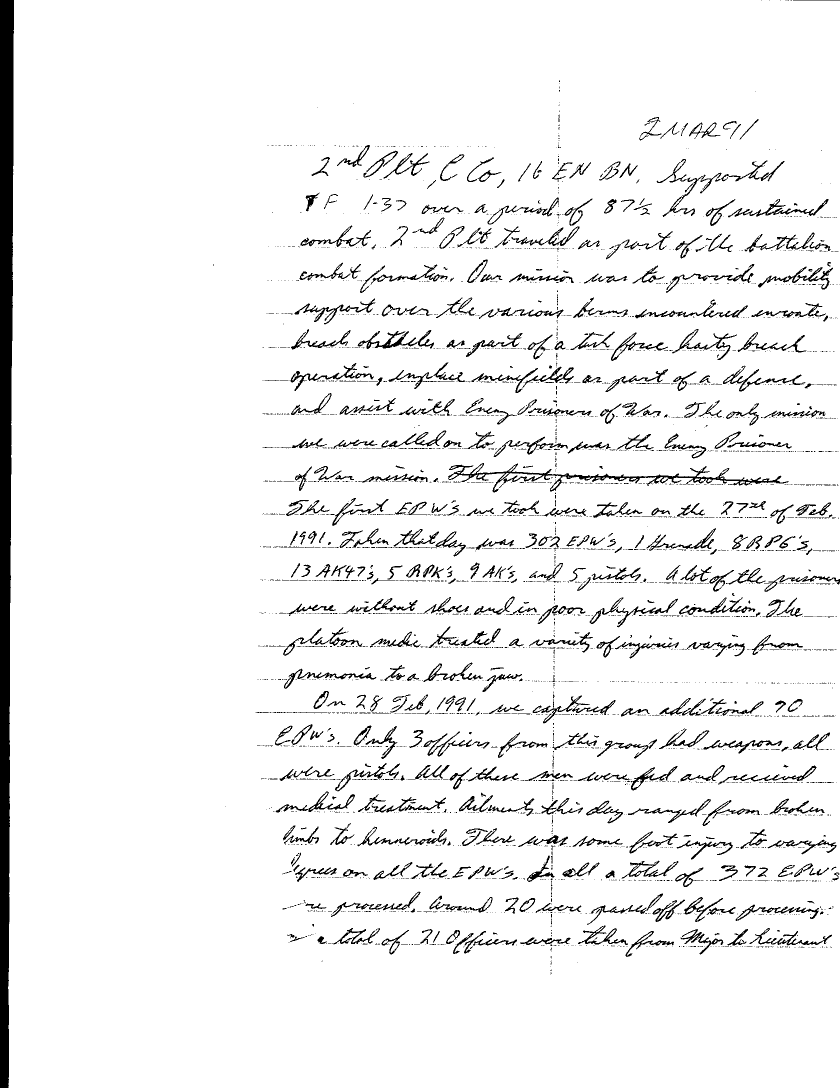 2 MAR 91
2nd Plt, C Co, 16 EN BN, Supported
TF 1-37 over a period of 87½ hrs of sustained
combat. 2nd Plt traveled as part of the battalion
combat formation. Our mission was to provide mobility
support over the various berms encountered enroute,
breach obstacles as part of a task force hasty breach
operation, emplace minefields as part of a defense,
and assist with Enemy Prisoners of War. The only mission
we were called on to perform was the Enemy Prisoner
of War mission. The first prisoners we took were
The first EPW's we took were taken on the 27th of Feb.
1991. Taken that day was 302 EPW's, 1 Grenade, 8 RPG's,
13 AK47's, 5 RPK's, 9 AK's, and 5 pistols. A lot of the prisoners
were without shoes and in poor physical condition. The
platoon medic treated a variety of injuries varying from
pnemonia to a broken jaw.
On 28 Feb, 1991, we captured an additional 70
EPW's. Only 3 officers from this group had weapons, all
were pistols. All of these men were fed and recieved
medical treatment. Ailments this day ranged from broken
limbs to hemneroids. There was some foot injury to varying
degrees on all the EPW's. In all a total of 372 EPW's
re processed. Around 20 were passed off before processing.
a total of 21 Officers were taken from Major to Lieutenant